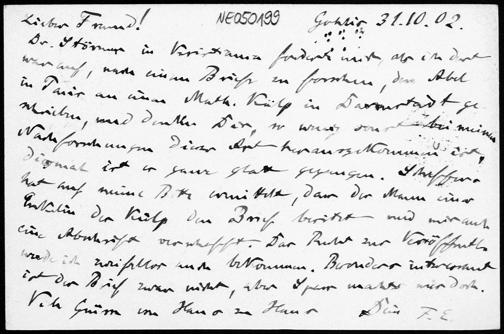 Lieber Freund! NE050199 31.10.02.
Dr. Störmer in Kristiania forderte mich, als ich dort
war auf, nach einem Briefe zu forschen, den Abel
in Paris an einen Math. Külp in Darmstadt ge-
schrieben, und denke Dir, so wenig sonst bei meinen
Nachforschungen dieser Art herausgekommen ist,
diesmal ist es ganz glatt gegangen.
hat auf meine Bitte ermittelt, dass der Mann einer
Enkelin des Külp den Brief besitzt und mir auch
eine Abschrift verschafft. Das Recht zur Veröffentl.
werde ich zweifellos auch bekommen. Besonders interessant
ist der Brief zwar nicht, aber Spass macht es mir doch.
Viele Grüsse von Haus zu Haus Dein F. E.